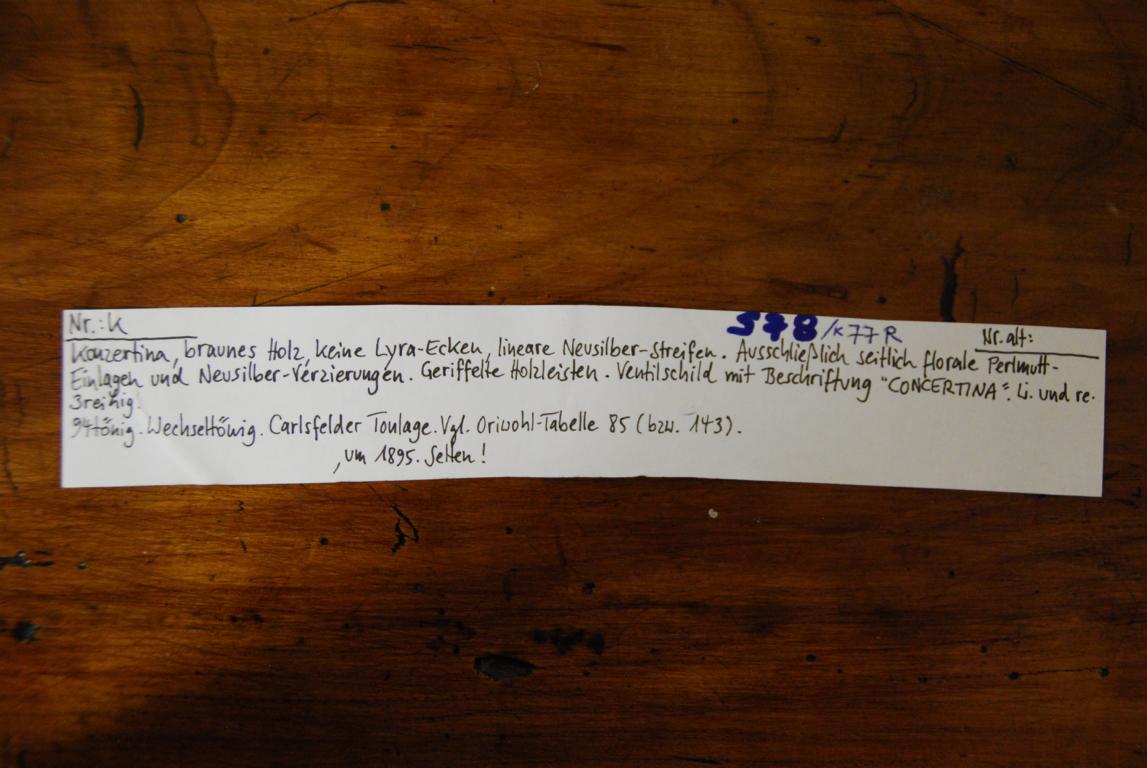 Nr.: K 578/K77R Nr. alt:
Konzertina, braunes Holz, keine Lyra-Ecken, lineare Neusilber-Streifen. Ausschließlich seitlich florale Perlmutt-
Einlagen und Neusilber-Verzierungen. Geriffelte Holzleisten. Ventilschild mit Beschriftung "CONCERTINA". Li. und re.
3reihig.
94tönig. Wechseltönig. Carlsfelder Tonlage. Vgl. Oriwohl-Tabelle 85 (bzw. 143).
, um 1895. Selten!